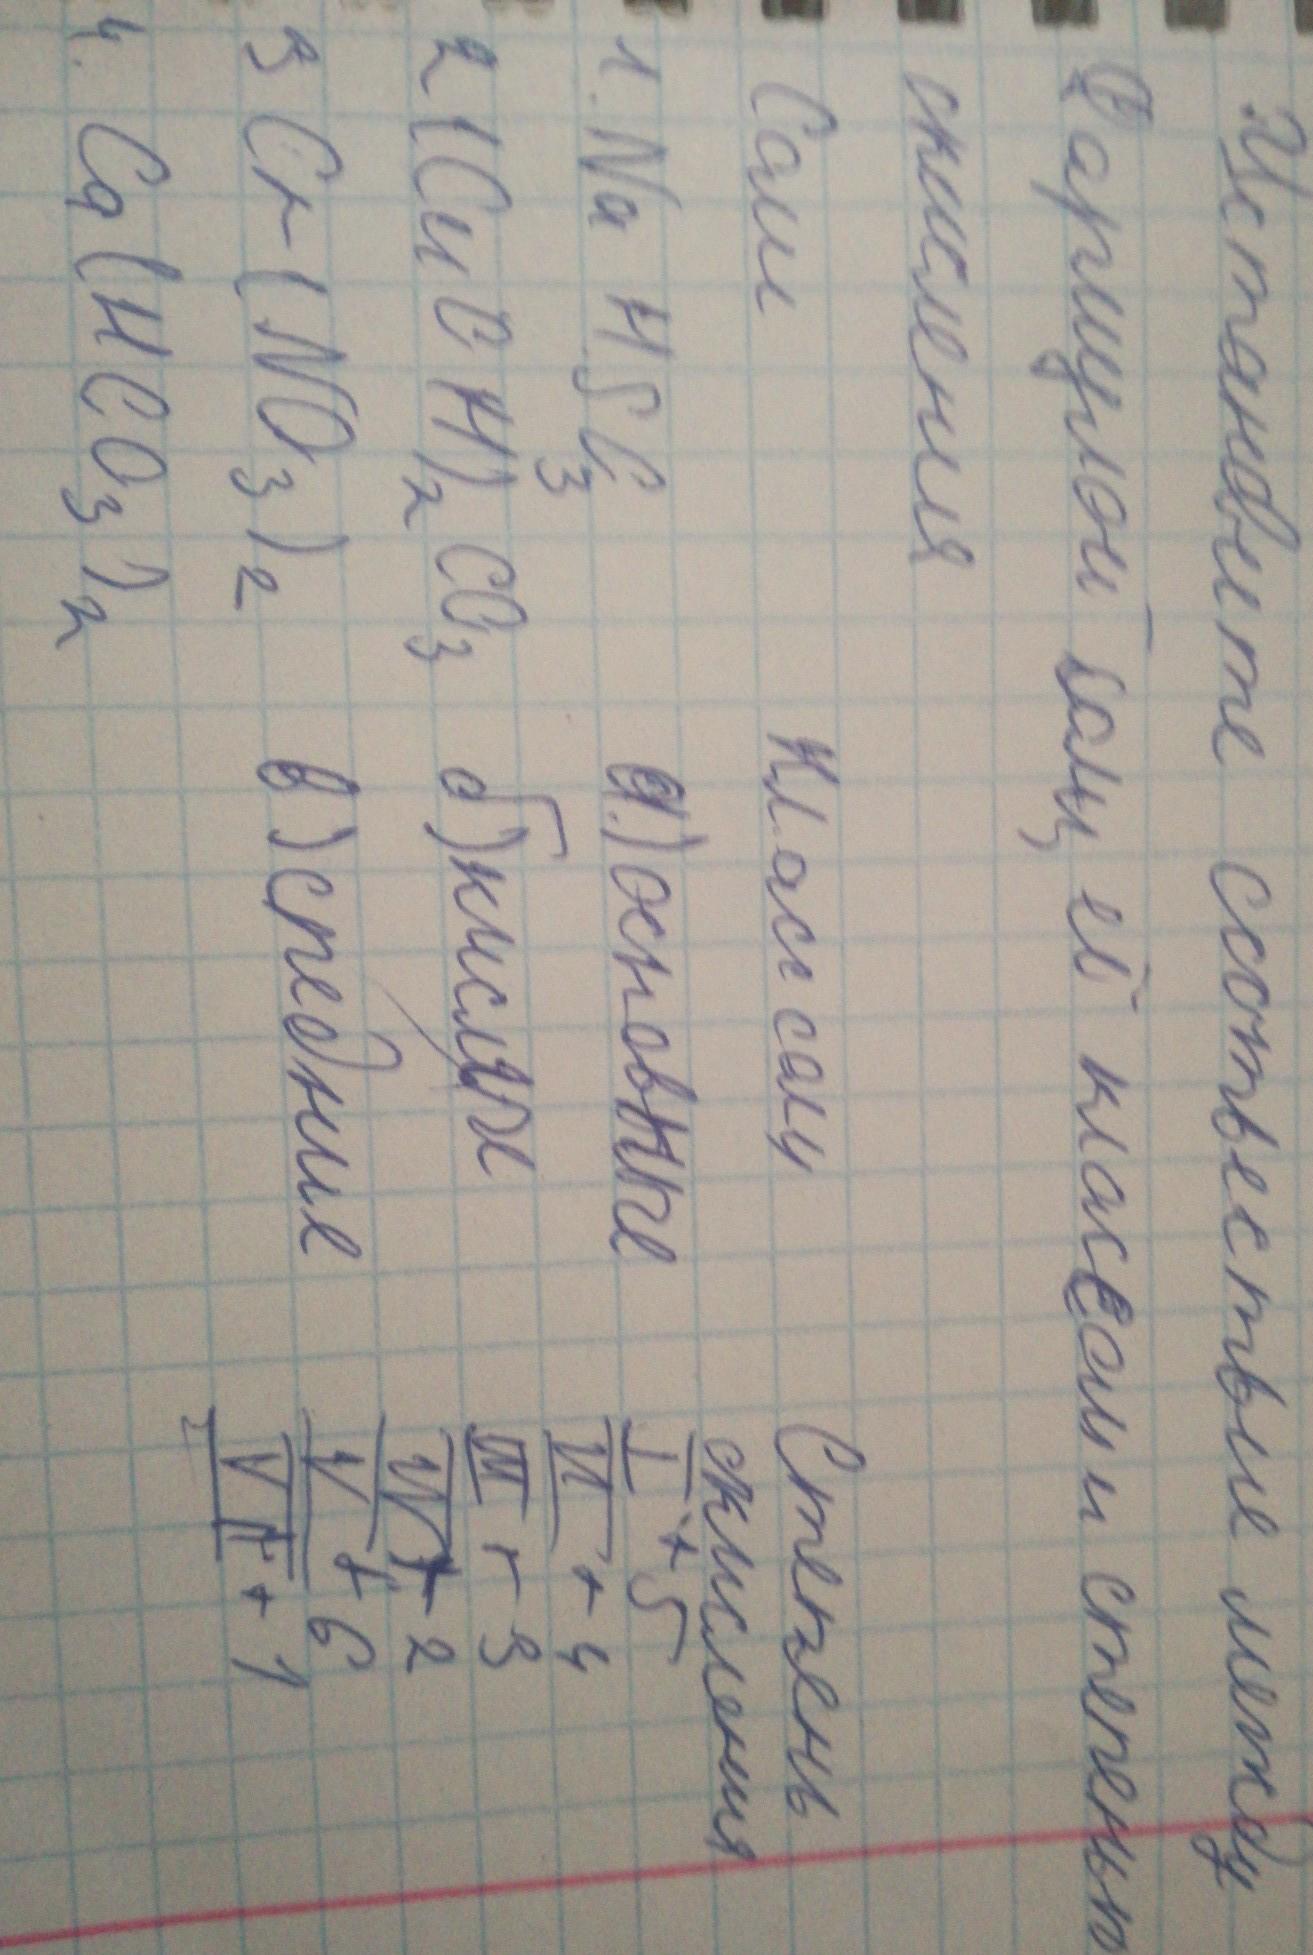 Установите соотвествие между
Формулой соли, её классом и степенью
окисления
Соли Класс соли Степень
окисления
1. NaHSO3 а) основные I +5
2 (CuOH)2CO3 б) кислых II +4
3 Cr(NO3)2 в) средние III +3
4. Ca(HCO3)2 IV +2
V +6
VI +1